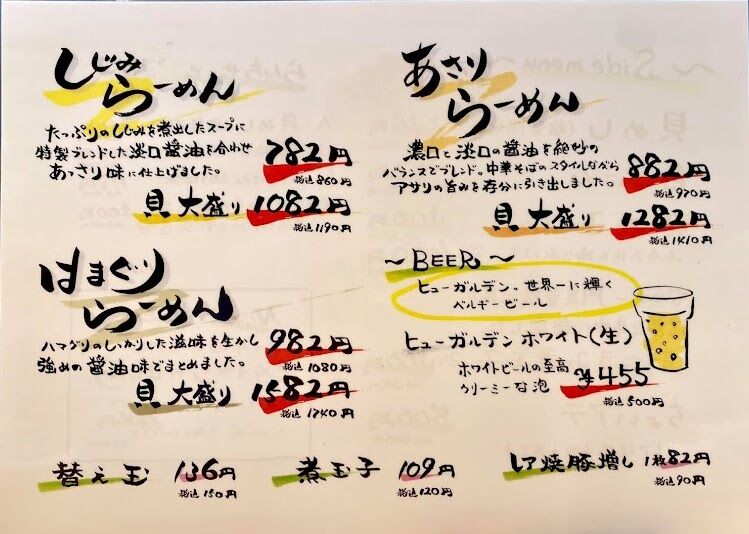 しじみ
らーめん
たっぷりのしじみを煮出したスープに
特製ブレンドした淡口醤油を合わせ
あっさり味に仕上げました。
782円
税込860円
貝大盛り1082円
税込1190円
あさり
らーめん
濃口と淡口の醤油を絶妙の
バランスでブレンド。中華そばのスタイルながら
アサリの旨みを存分に引き出しました。
882円
税込970円
貝大盛り1282円
税込1410円
はまぐり
らーめん
ハマグリのしっかりした滋味を生かし
強めの醤油味でまとめました。
982円
税込1080円
貝大盛り1582円
税込1740円
～BEER～
ヒューガルデン。世界一に輝く
ベルギービール
ヒューガルデンホワイト(生)
ホワイトビールの至高
クリーミーな泡
¥455
税込500円
替え玉 136円
税込150円
煮玉子 109円
税込120円
レア焼豚増し 1枚82円
税込90円